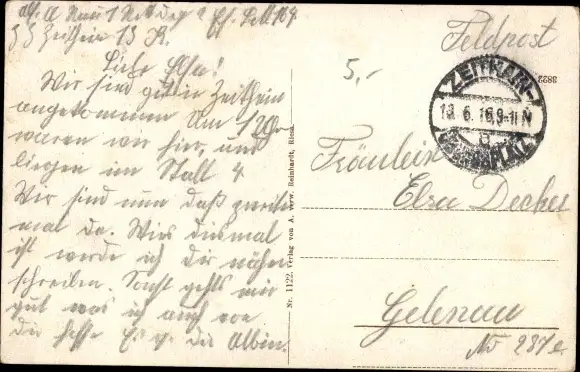 Z Z Zeithain 13 K.
Liebe Elsa!
Wir sind gut in Zeithain
angekommen Um 12 Uhr
waren wir hier, und
liegen im Stall 4
Wir sind nun das zweite
mal da. Wies diesmal
ist werde ich dir näher
schreiben. Sonst gehts mir
gut was ich auch von
dir hoffe Es gr. dir Albin.
Nr. 1122. Verlag von A. verw. Reinhardt, Riesa
Feldpost
5,-
3892
ZEITHAIN
18 6.16.9-11 N
Fräulein
Elsa Decker
Gelenau
No 287e.